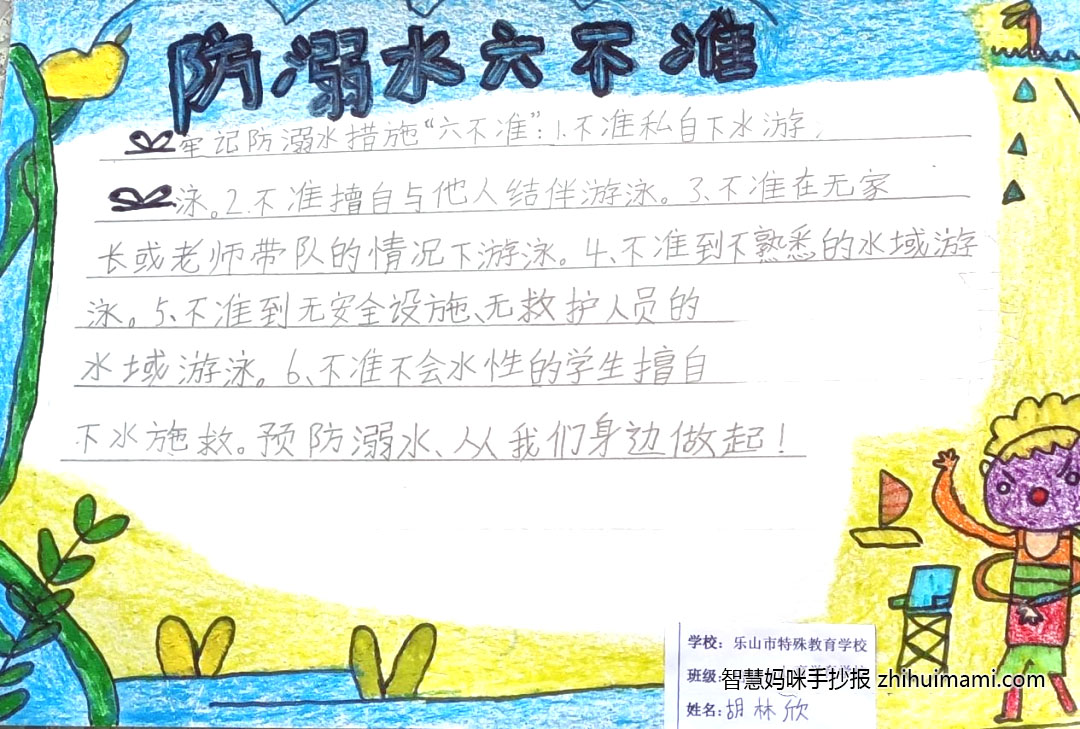 防溺水六不准
牢记防溺水措施“六不准”:1.不准私自下水游
泳。2.不准擅自与他人结伴游泳。3.不准在无家
长或老师带队的情况下游泳。4、不准到不熟悉的水域游
泳。5、不准到无安全设施、无救护人员的
水域游泳。6、不准不会水性的学生擅自
下水施救。预防溺水、从我们身边做起!
学校:乐山市特殊教育学校
班级:
智慧妈咪手抄报 zhihuimami.com
姓名:胡林欣